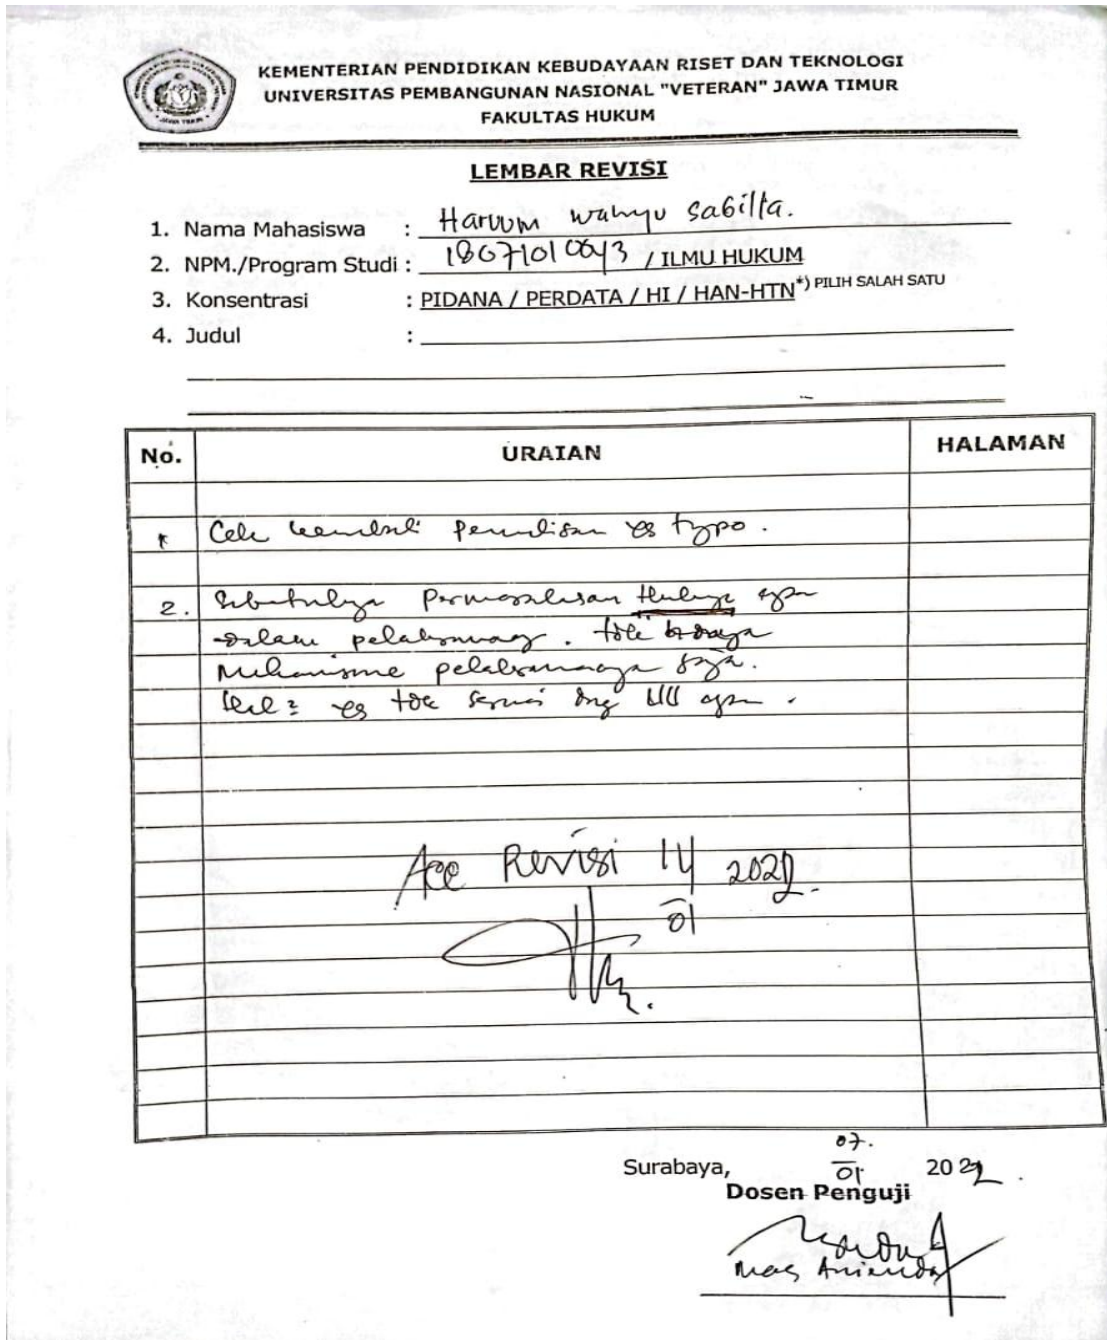 KEMENTERIAN PENDIDIKAN KEBUDAYAAN RISET DAN TEKNOLOGI
UNIVERSITAS PEMBANGUNAN NASIONAL "VETERAN" JAWA TIMUR
FAKULTAS HUKUM
LEMBAR REVISI
1. Nama Mahasiswa : Harum Wahyu Sabilla.
2. NPM./Program Studi : 18071010043 / ILMU HUKUM
3. Konsentrasi : PIDANA / PERDATA / HI / HAN-HTN*) PILIH SALAH SATU
4. Judul :
No. URAIAN HALAMAN
1 Cek kembali penulisan yg typo.
2. Sebetulnya permasalahan Hukumnya apa
dalam pelaksanaannya. tdk hanya
Mekanisme pelaksanaannya saja.
Hal2 yg tdk sesuai dng UU apa.
Acc Revisi 14 2022.
01
07.
Surabaya, 01 2022.
Dosen Penguji
Mas Anienda